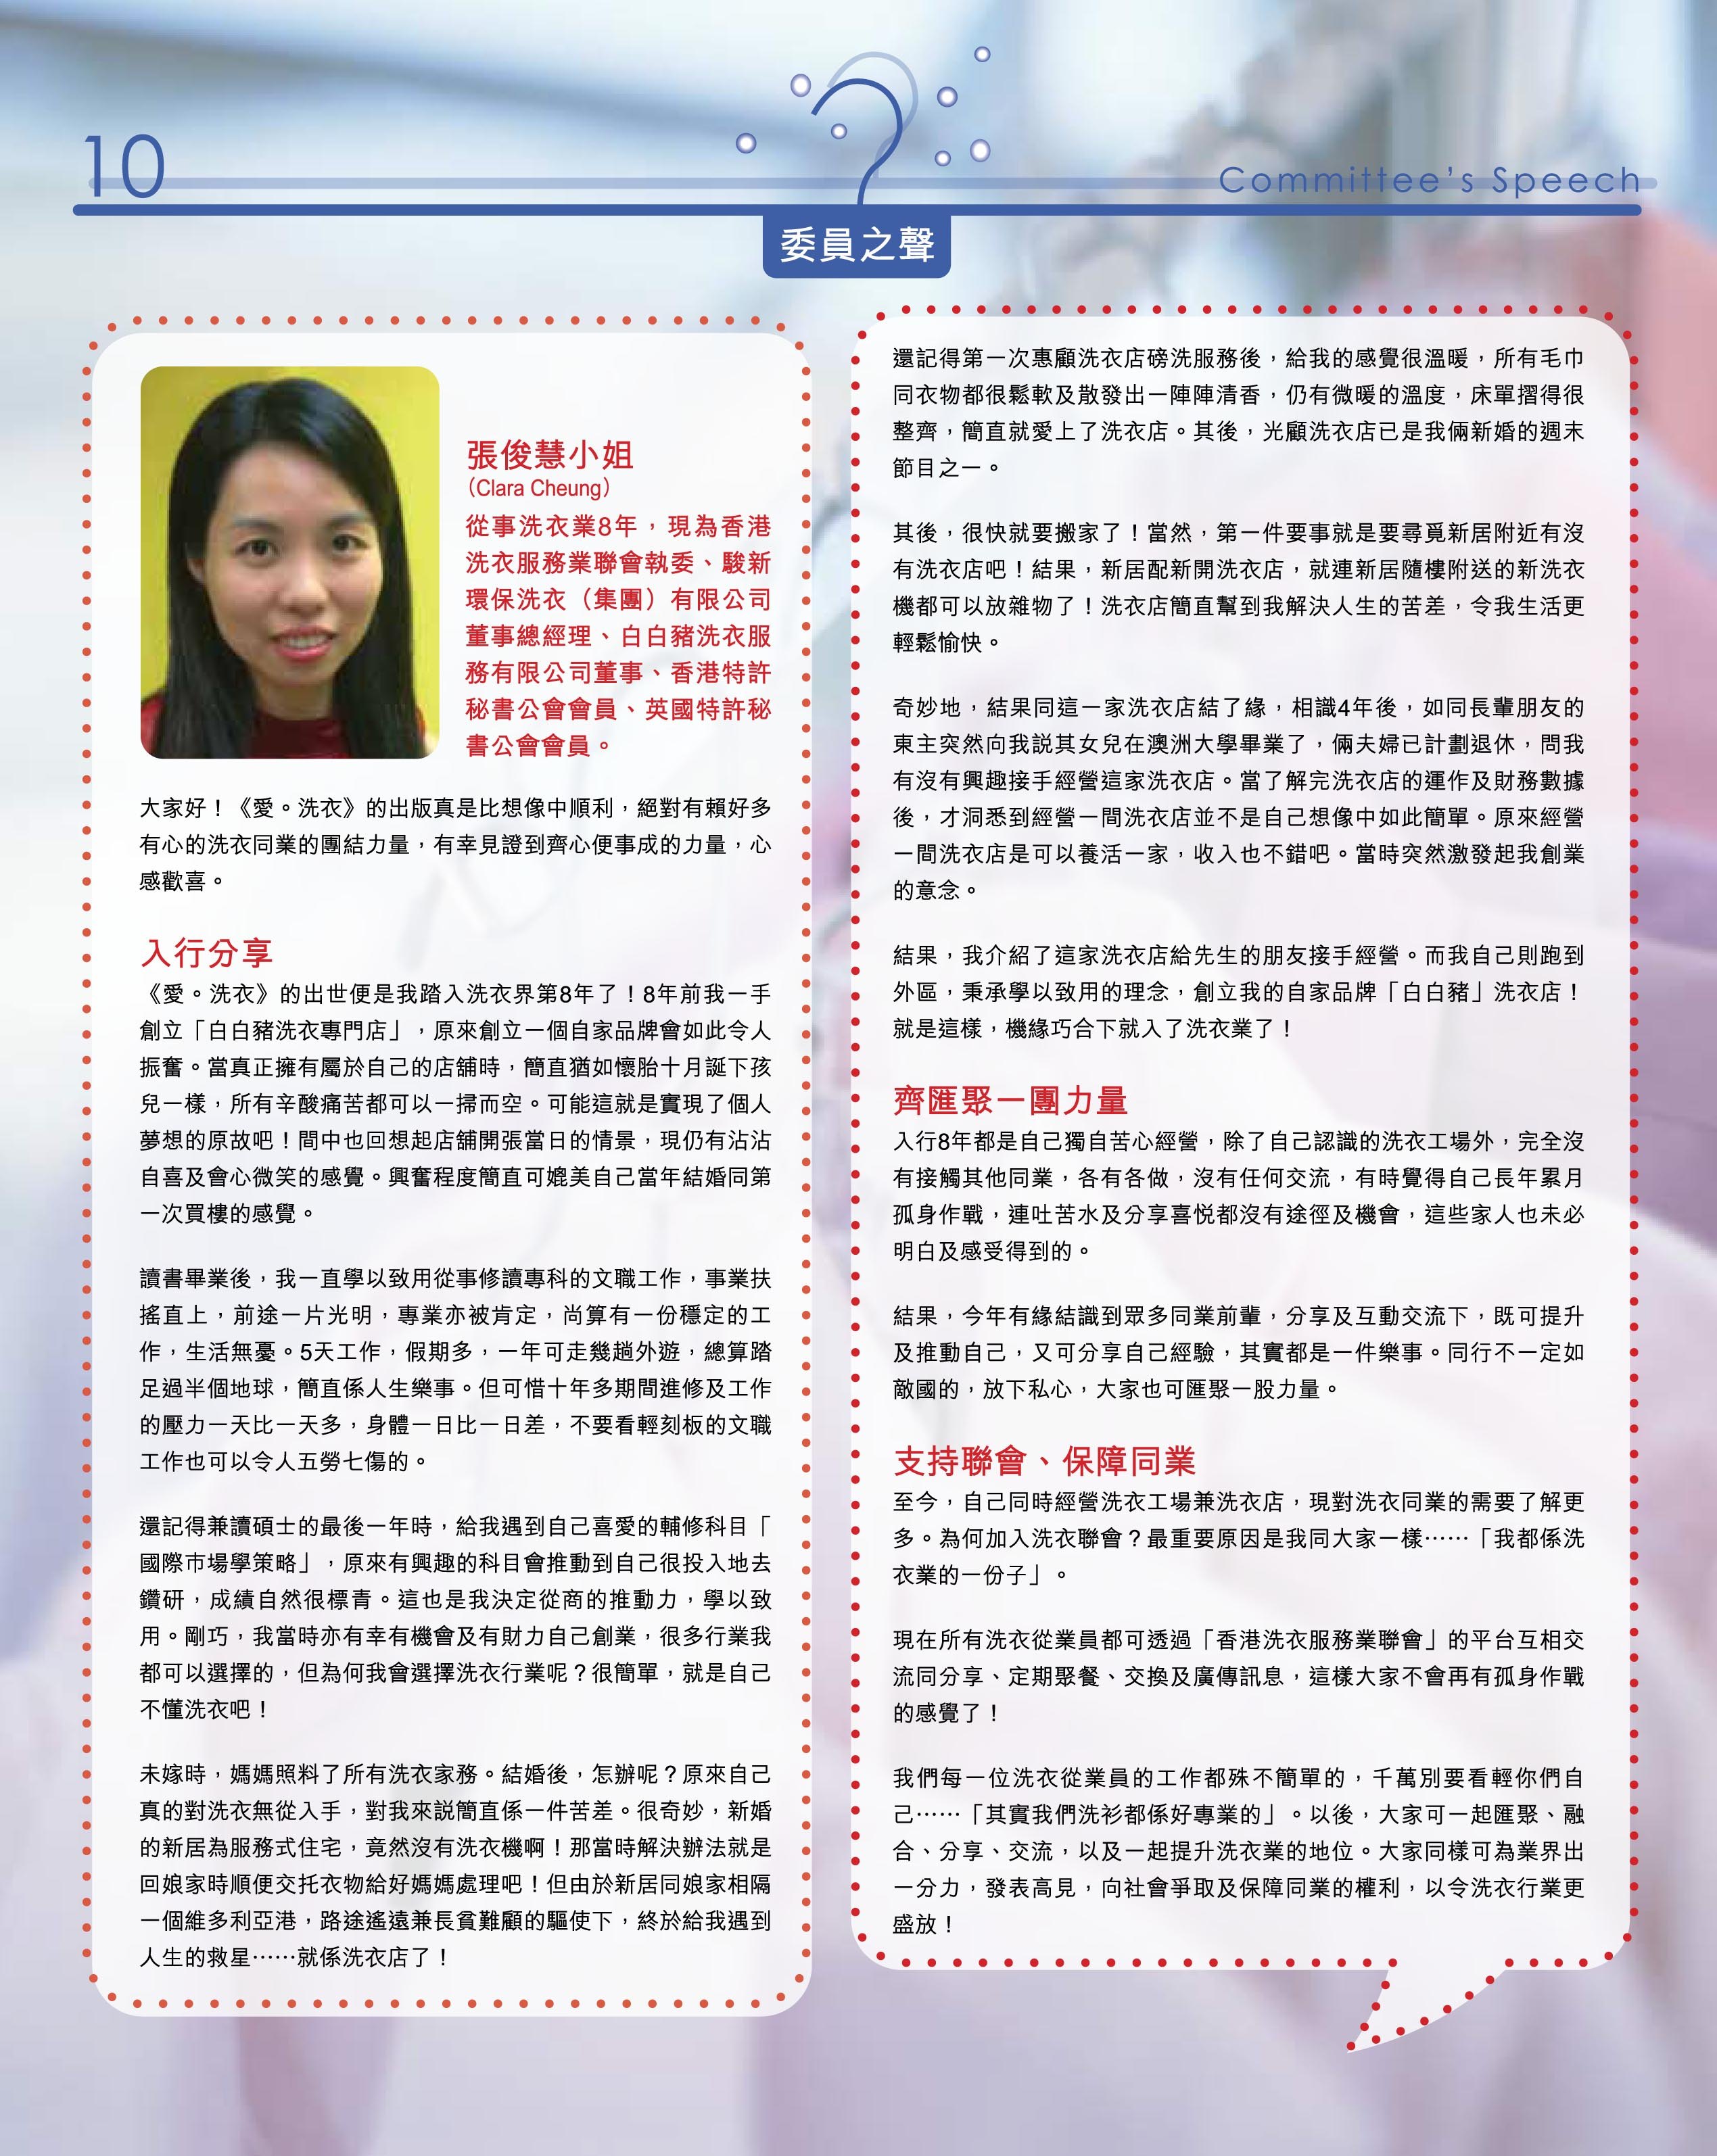 10
Committee's Speech
委員之聲
張俊慧小姐
（Clara Cheung）
從事洗衣業8年，現為香港
洗衣服務業聯會執委、駿新
環保洗衣（集團）有限公司
董事總經理、白白豬洗衣服
務有限公司董事、香港特許
秘書公會會員、英國特許秘
書公會會員。
大家好！《愛。洗衣》的出版真是比想像中順利，絕對有賴好多
有心的洗衣同業的團結力量，有幸見證到齊心便事成的力量，心
感歡喜。
入行分享
《愛。洗衣》的出世便是我踏入洗衣界第8年了！8年前我一手
創立「白白豬洗衣專門店」，原來創立一個自家品牌會如此令人
振奮。當真正擁有屬於自己的店舖時，簡直猶如懷胎十月誕下孩
兒一樣，所有辛酸痛苦都可以一掃而空。可能這就是實現了個人
夢想的原故吧！間中也回想起店舖開張當日的情景，現仍有沾沾
自喜及會心微笑的感覺。興奮程度簡直可媲美自己當年結婚同第
一次買樓的感覺。
讀書畢業後，我一直學以致用從事修讀專科的文職工作，事業扶
搖直上，前途一片光明，專業亦被肯定，尚算有一份穩定的工
作，生活無憂。5天工作，假期多，一年可走幾趟外遊，總算踏
足過半個地球，簡直係人生樂事。但可惜十年多期間進修及工作
的壓力一天比一天多，身體一日比一日差，不要看輕刻板的文職
工作也可以令人五勞七傷的。
還記得兼讀碩士的最後一年時，給我遇到自己喜愛的輔修科目「
國際市場學策略」，原來有興趣的科目會推動到自己很投入地去
鑽研，成績自然很標青。這也是我決定從商的推動力，學以致
用。剛巧，我當時亦有幸有機會及有財力自己創業，很多行業我
都可以選擇的，但為何我會選擇洗衣行業呢？很簡單，就是自己
不懂洗衣吧！
未嫁時，媽媽照料了所有洗衣家務。結婚後，怎辦呢？原來自己
真的對洗衣無從入手，對我來説簡直係一件苦差。很奇妙，新婚
的新居為服務式住宅，竟然沒有洗衣機啊！那當時解決辦法就是
回娘家時順便交托衣物給好媽媽處理吧！但由於新居同娘家相隔
一個維多利亞港，路途遙遠兼長貧難顧的驅使下，終於給我遇到
人生的救星⋯⋯就係洗衣店了！
還記得第一次惠顧洗衣店磅洗服務後，給我的感覺很溫暖，所有毛巾
同衣物都很鬆軟及散發出一陣陣清香，仍有微暖的溫度，床單摺得很
整齊，簡直就愛上了洗衣店。其後，光顧洗衣店已是我倆新婚的週末
節目之一。
其後，很快就要搬家了！當然，第一件要事就是要尋覓新居附近有沒
有洗衣店吧！結果，新居配新開洗衣店，就連新居隨樓附送的新洗衣
機都可以放雜物了！洗衣店簡直幫到我解決人生的苦差，令我生活更
輕鬆愉快。
奇妙地，結果同這一家洗衣店結了緣，相識4年後，如同長輩朋友的
東主突然向我説其女兒在澳洲大學畢業了，倆夫婦已計劃退休，問我
有沒有興趣接手經營這家洗衣店。當了解完洗衣店的運作及財務數據
後，才洞悉到經營一間洗衣店並不是自己想像中如此簡單。原來經營
一間洗衣店是可以養活一家，收入也不錯吧。當時突然激發起我創業
的意念。
結果，我介紹了這家洗衣店給先生的朋友接手經營。而我自己則跑到
外區，秉承學以致用的理念，創立我的自家品牌「白白豬」洗衣店！
就是這樣，機緣巧合下就入了洗衣業了！
齊匯聚一團力量
入行8年都是自己獨自苦心經營，除了自己認識的洗衣工場外，完全沒
有接觸其他同業，各有各做，沒有任何交流，有時覺得自己長年累月
孤身作戰，連吐苦水及分享喜悅都沒有途徑及機會，這些家人也未必
明白及感受得到的。
結果，今年有緣結識到眾多同業前輩，分享及互動交流下，既可提升
及推動自己，又可分享自己經驗，其實都是一件樂事。同行不一定如
敵國的，放下私心，大家也可匯聚一股力量。
支持聯會、保障同業
至今，自己同時經營洗衣工場兼洗衣店，現對洗衣同業的需要了解更
多。為何加入洗衣聯會？最重要原因是我同大家一樣⋯⋯「我都係洗
衣業的一份子」。
現在所有洗衣從業員都可透過「香港洗衣服務業聯會」的平台互相交
流同分享、定期聚餐、交換及廣傳訊息，這樣大家不會再有孤身作戰
的感覺了！
我們每一位洗衣從業員的工作都殊不簡單的，千萬別要看輕你們自
己⋯⋯「其實我們洗衫都係好專業的」。以後，大家可一起匯聚、融
合、分享、交流，以及一起提升洗衣業的地位。大家同樣可為業界出
一分力，發表高見，向社會爭取及保障同業的權利，以令洗衣行業更
盛放！